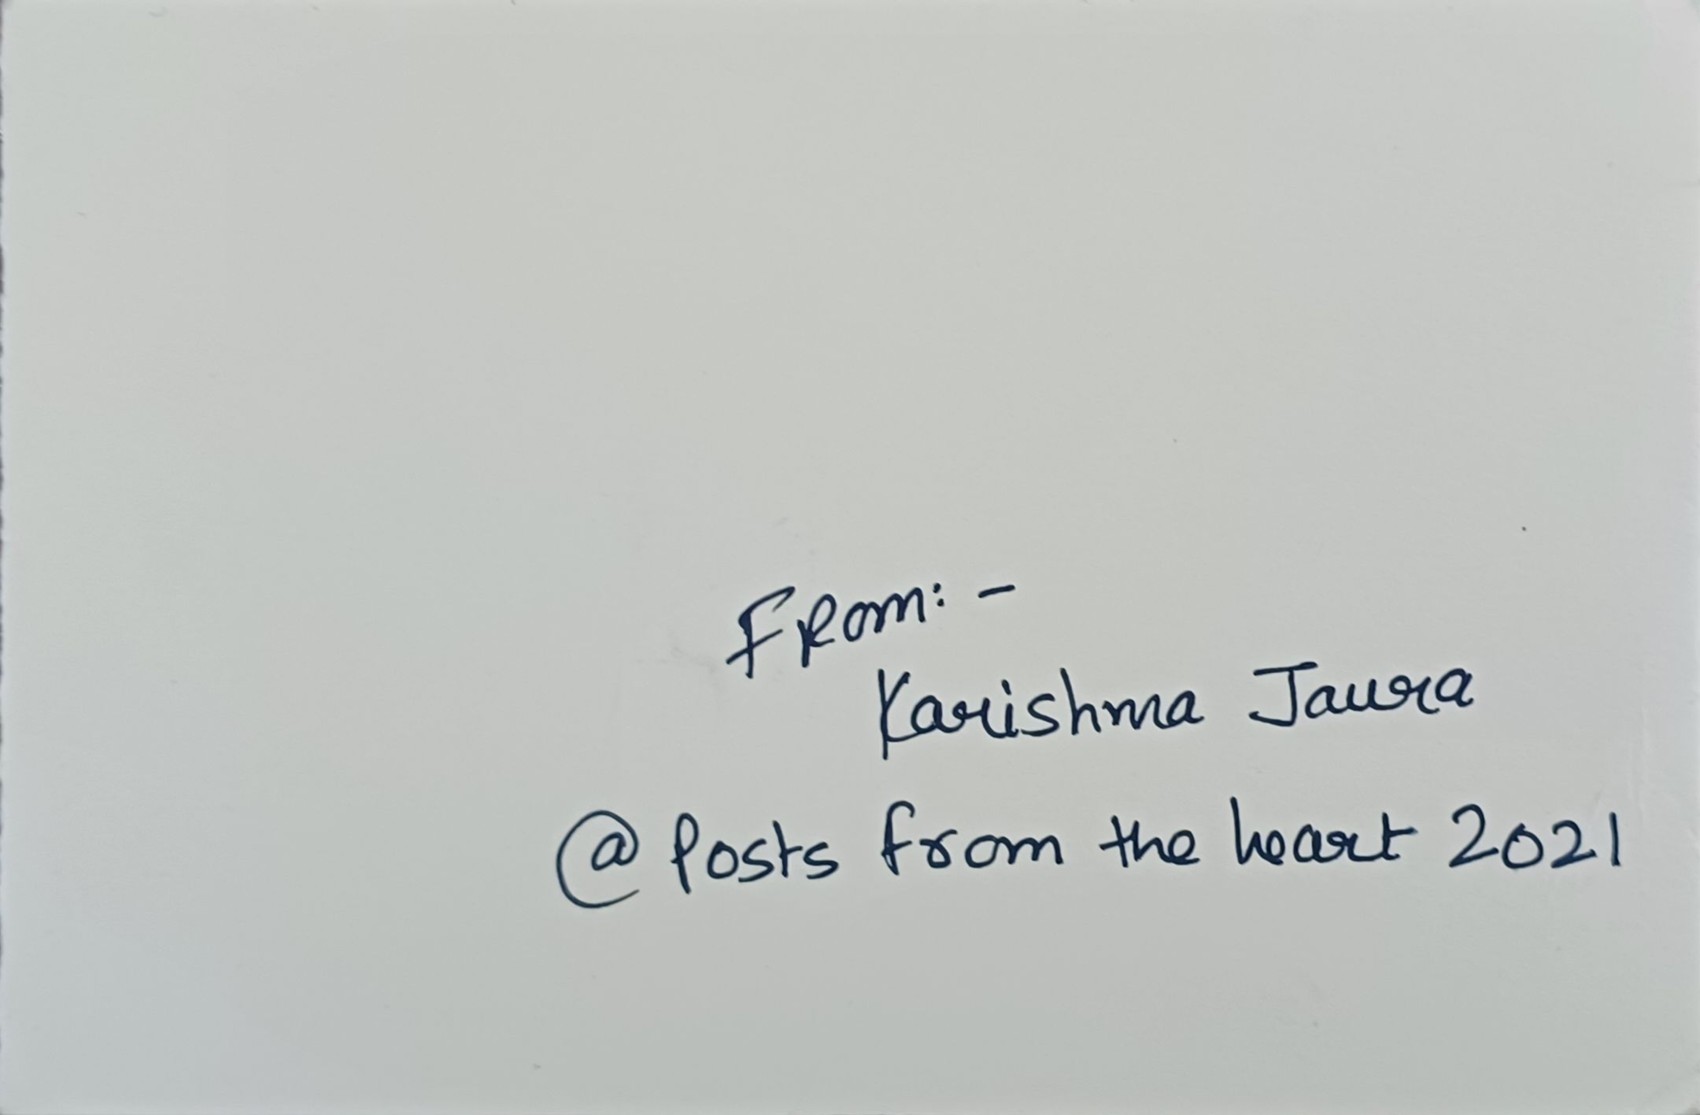 From: -
Karishma Jaura
@ Posts from the heart 2021